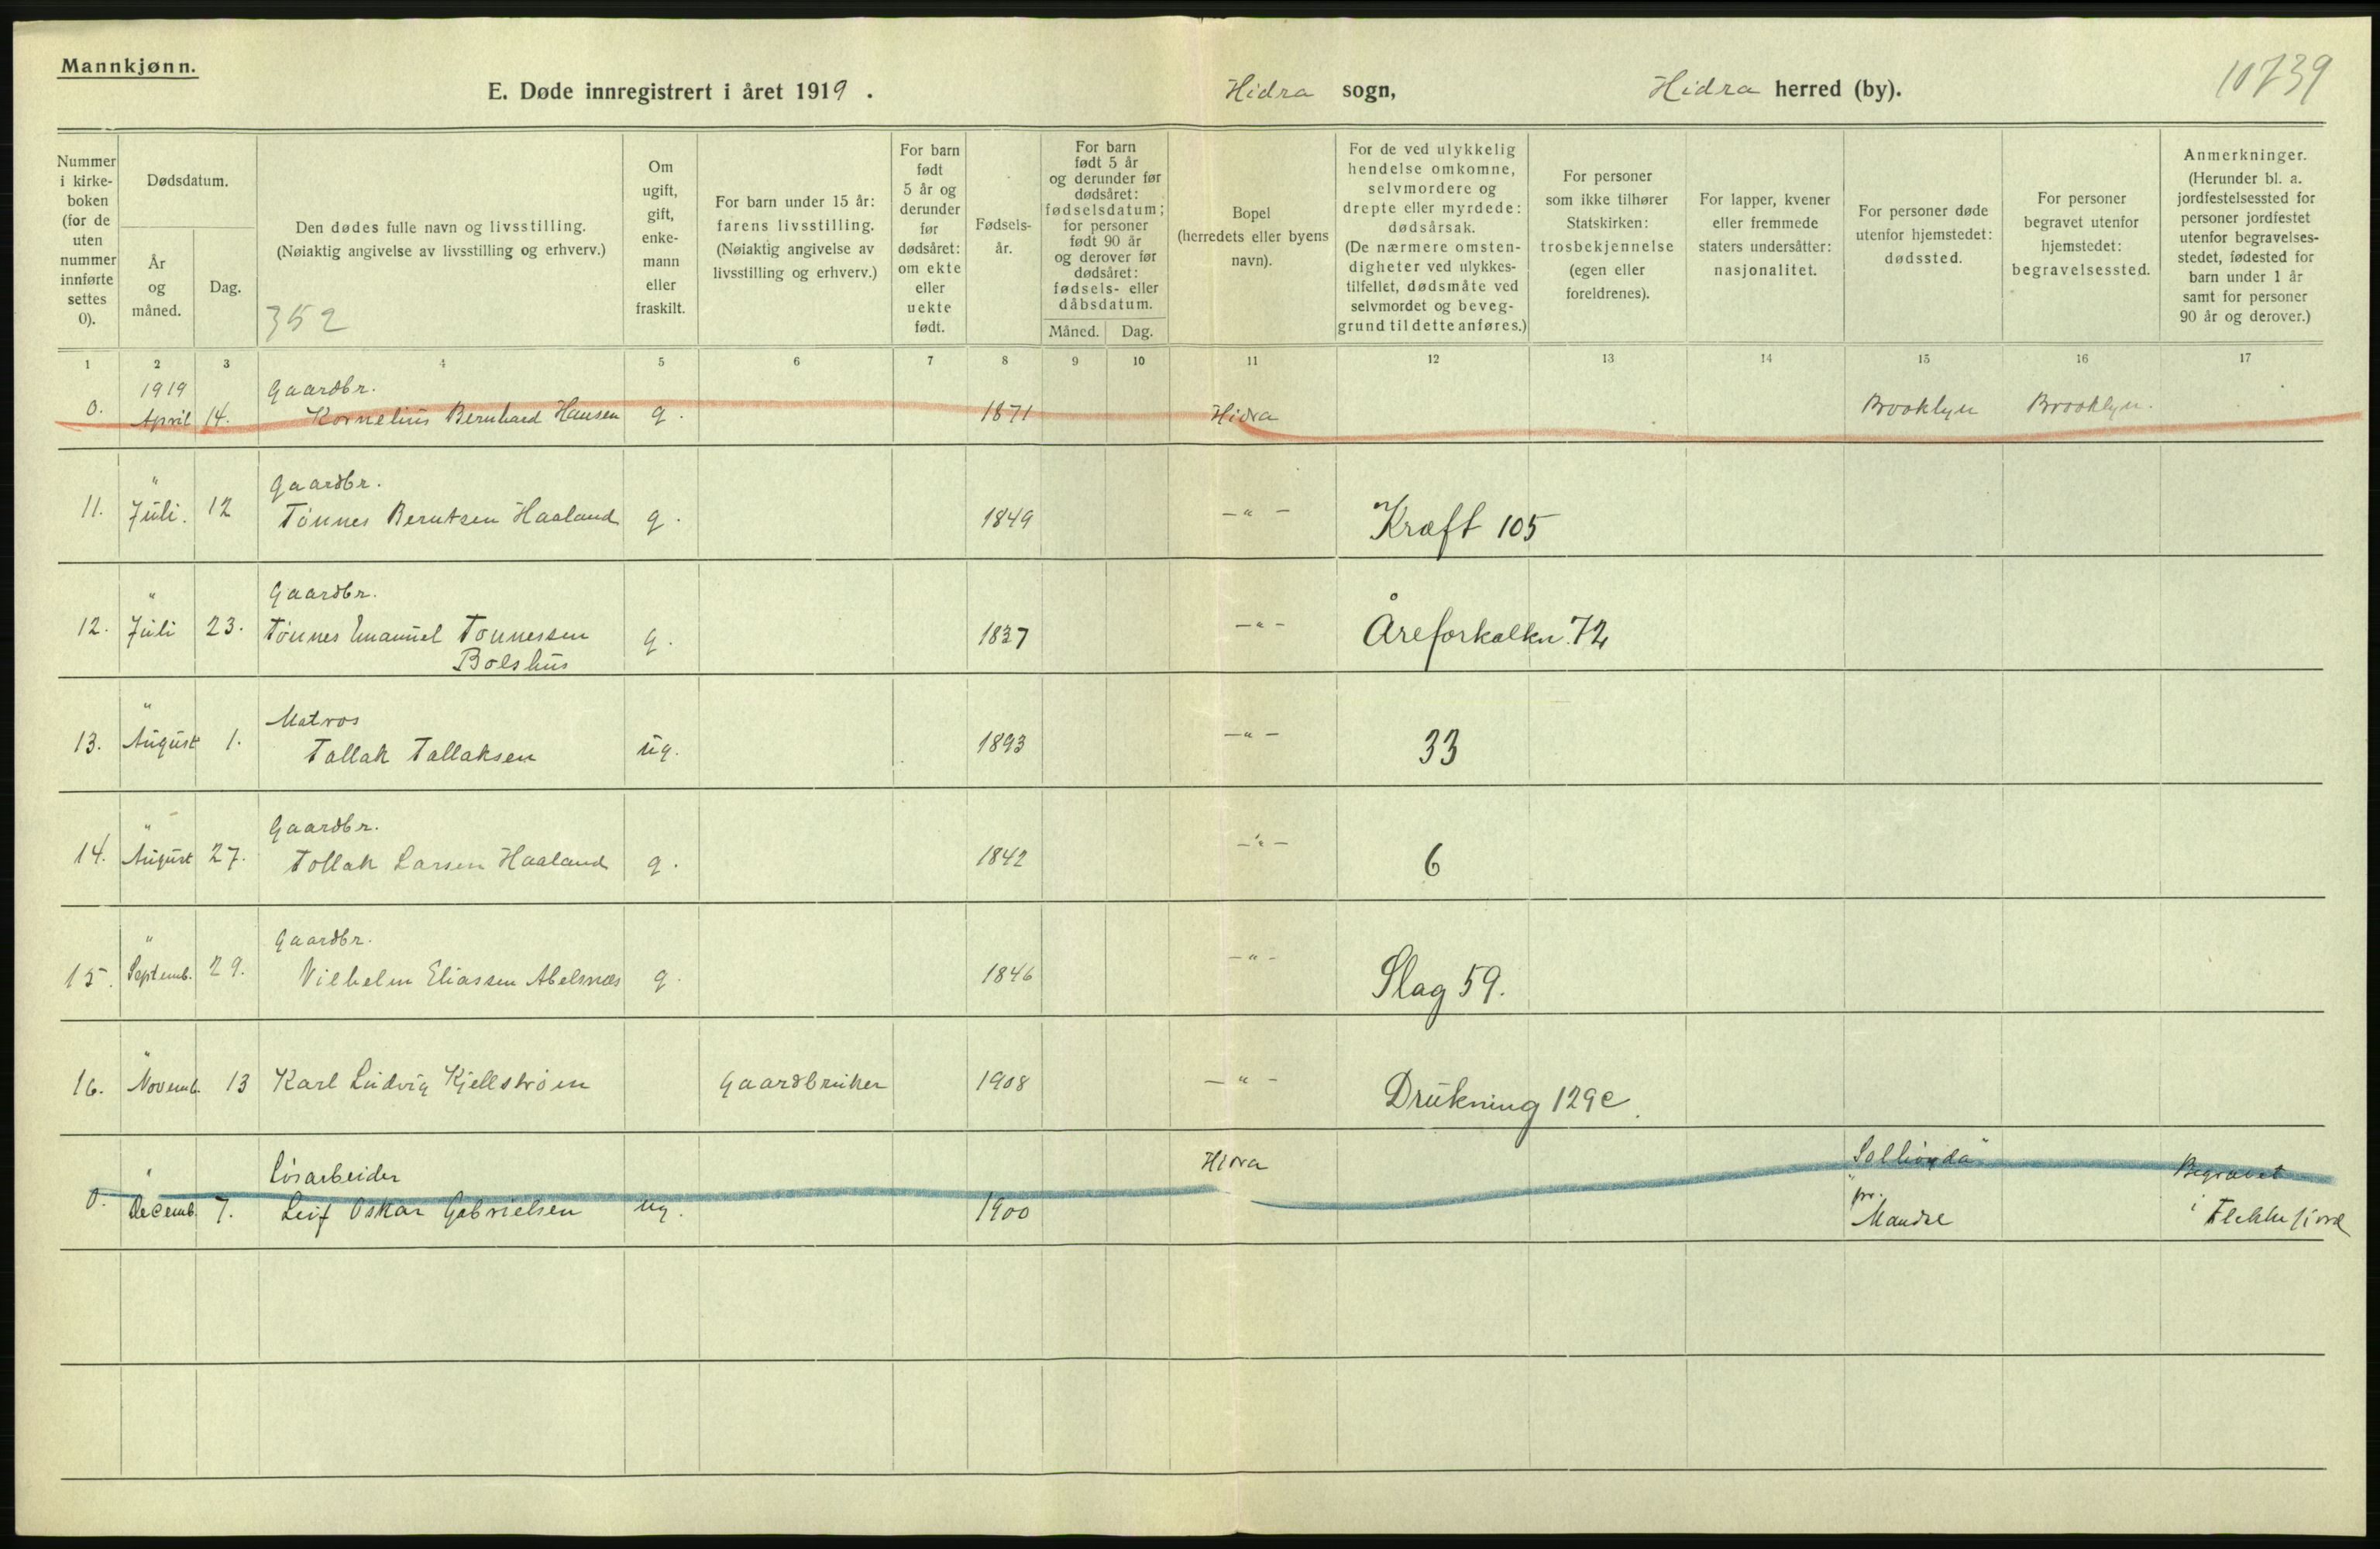 Mannkjønn.
E. Døde innregistrert i året 1919 .
Hidra sogn,
Hidra herred (by).
10739
Nummer
i kirke-
boken
(for de
uten
nummer
innførte
settes
0).
Dødsdatum.
År
og
måned.
Dag.
Den dødes fulle navn og livsstilling.
(Nøiaktig angivelse av livsstilling og erhverv.)
352
Om
ugift,
gift,
enke-
mann
eller
fraskilt.
For barn under 15 år:
farens livsstilling.
(Nøiaktig angivelse av
livsstilling og erhverv.)
For barn
født
5 år og
derunder
før
dødsåret:
om ekte
eller
uekte
født.
Fødsels-
år.
For barn
født 5 år
og derunder før
dødsåret:
fødselsdatum;
for personer
født 90 år
og derover før
dødsåret:
fødsels- eller
dåbsdatum.
Måned.
Dag.
Bopel
(herredets eller byens
navn).
For de ved ulykkelig
hendelse omkomne,
selvmordere og
drepte eller myrdede:
dødsårsak.
(De nærmere omsten-
digheter ved ulykkes-
tilfellet, dødsmåte ved
selvmordet og beveg-
grund til dette anføres.)
For personer
som ikke tilhører
Statskirken:
trosbekjennelse
(egen eller
foreldrenes).
For lapper, kvener
eller fremmede
staters undersåtter:
nasjonalitet.
For personer døde
utenfor hjemstedet:
dødssted.
For personer
begravet utenfor
hjemstedet:
begravelsessted.
Anmerkninger.
(Herunder bl. a.
jordfestelsessted for
personer jordfestet
utenfor begravelses-
stedet, fødested for
barn under 1 år
samt for personer
90 år og derover.)
1 2 3 4 5 6 7 8 9 10 11 12 13 14 15 16 17
1919 Gaardbr.
0. April 14. Kornelius Bernhard Hansen g. 1871 Hidra Brooklyn Brooklyn.
" Gaardbr.
11. Juli. 12 Tønnes Berntsen Haaland g. 1849 —"— Kræft 105
" Gaardbr.
12. Juli 23. Tønnes Emanuel Tønnessen g. 1837 —"— Åreforkalkn. 72
Bolshus
" Matros
13. August 1. Tallak Tallaksen ug. 1893 —"— 33
" Gaardbr.
14. August 27. Tollak Larsen Haaland g. 1842 —"— 6
" Gaardbr.
15. Septemb. 29. Vilhelm Eliassen Abelsnæs g. 1846 —"— Slag 59.
"
16. Novemb. 13 Karl Ludvig Kjellstrøm Gaardbruker 1908 —"— Drukning 129c.
" Løsarbeider Hidra Begravet
0. Decemb. 7. Leif Oskar Gabrielsen ug. 1900 pr. i Flekkefjord
Mandal